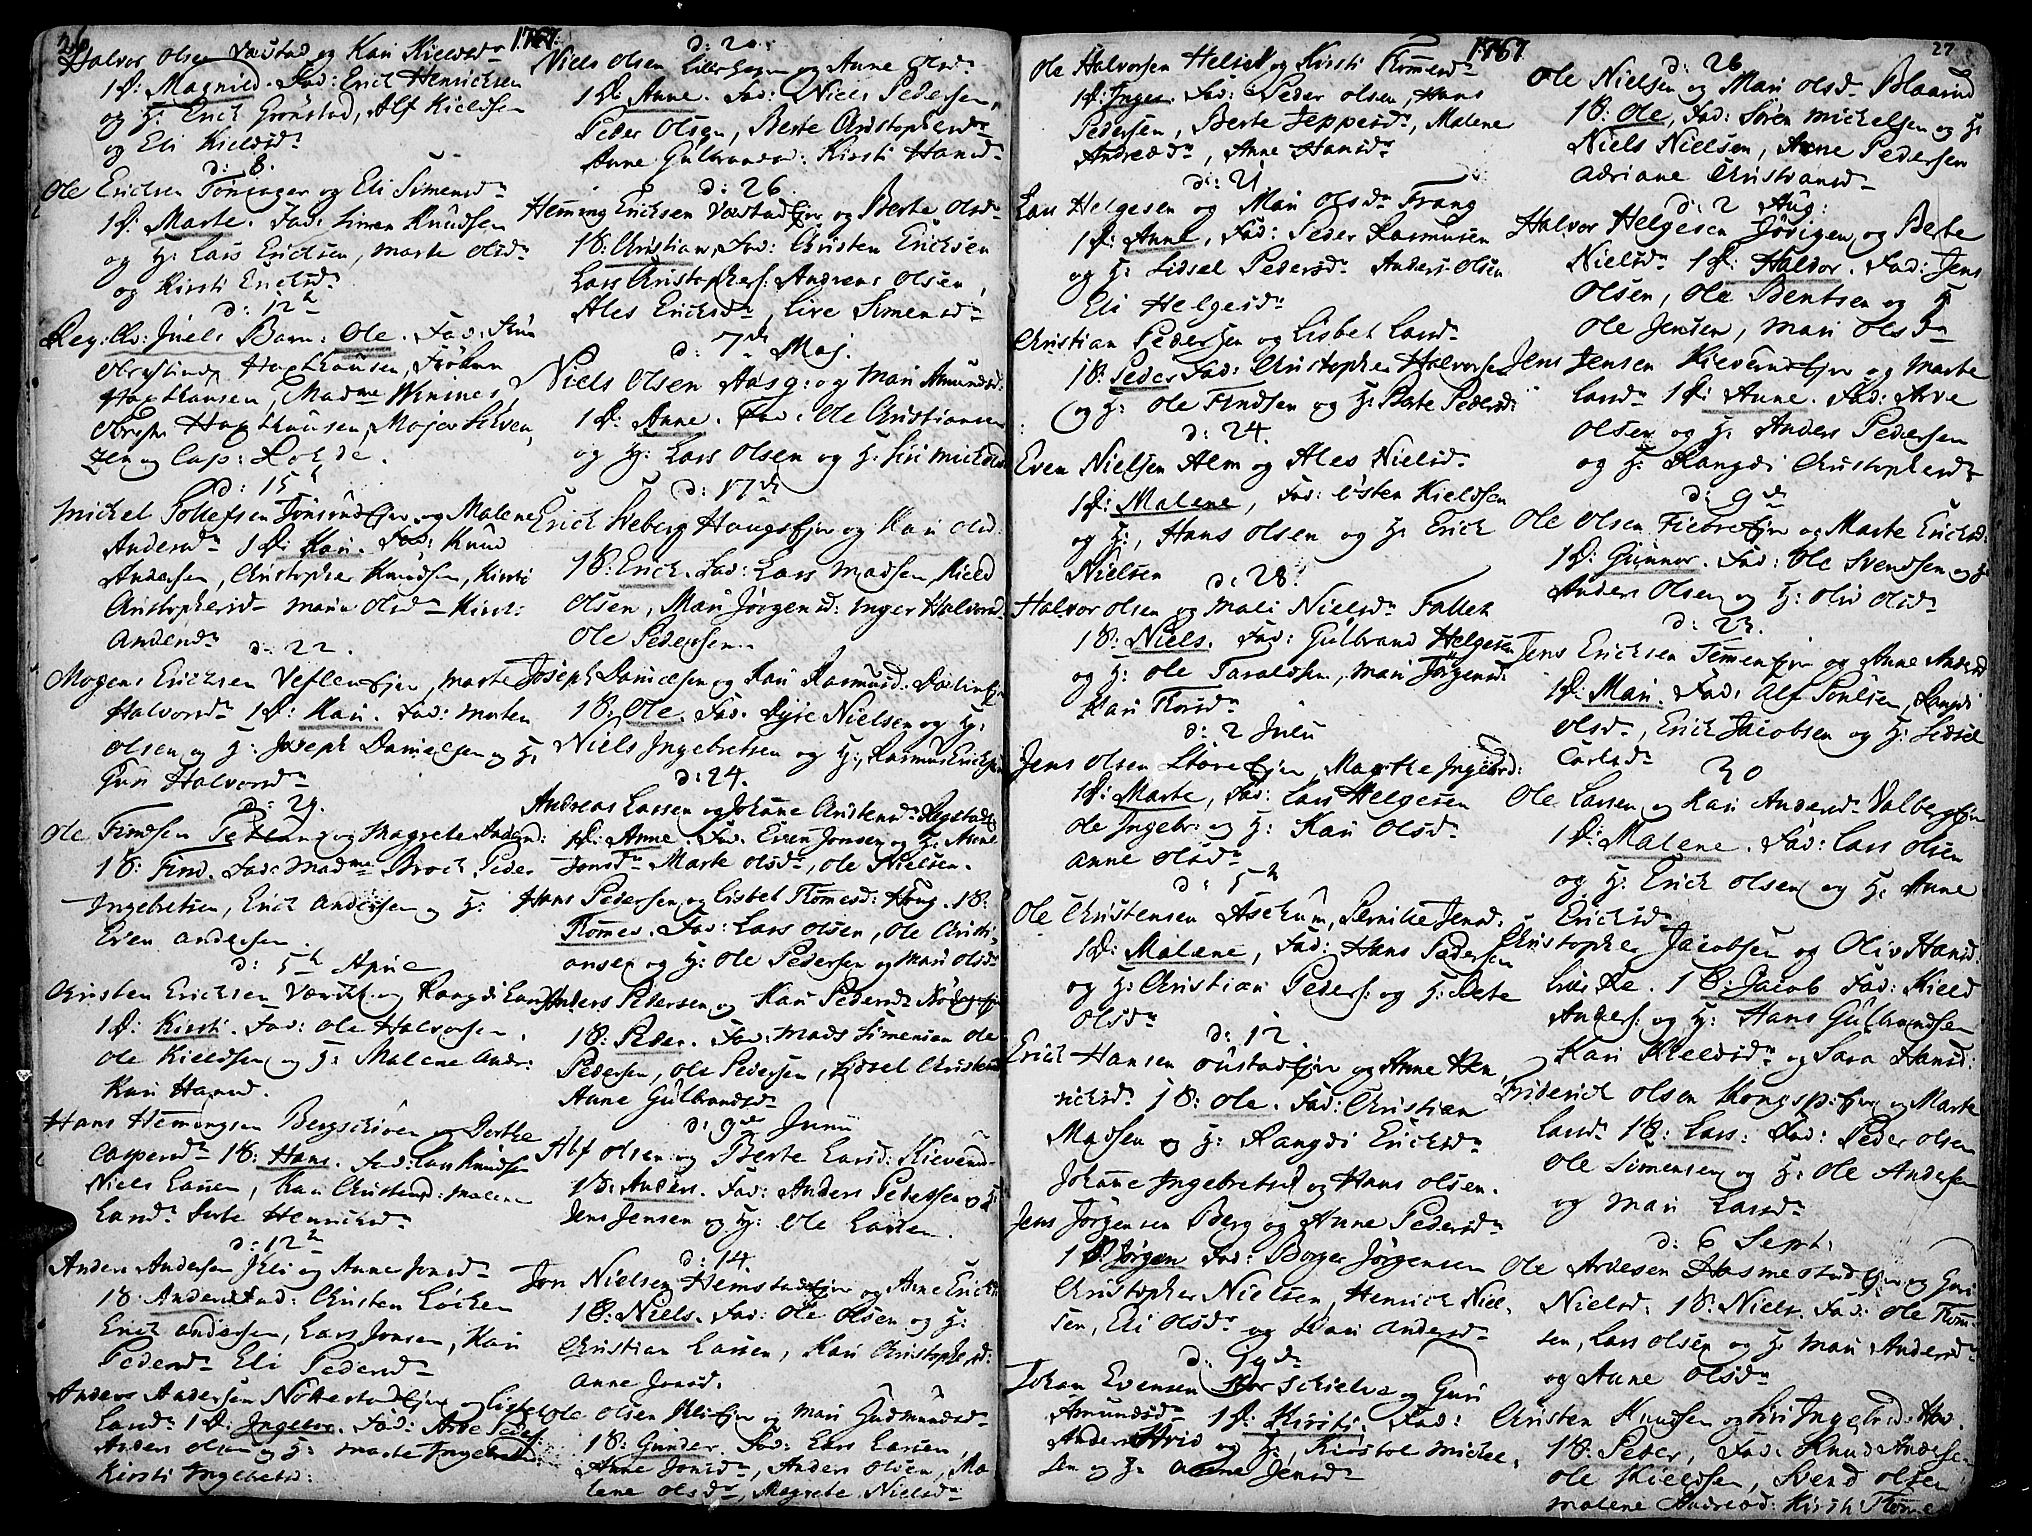 26
1767.
Halvor Olsen Væstad og Kari Kieldsd.
1 D: Magnild. Fad: Erich Henrichsen
og H: Erich Grønstad, Alf Kieldsen
og Eli Kieldsd.
d: 8.
Ole Erichsen Tønsager og Eli Simensd.
1 D: Marte. Fad: Simen Knudsen
og H: Lars Erichsen, Marte Olsd.
og Kirsti Erichsd.
d: 12
Reg: Qv: Juels Barn: Ole. Fad:
Haxthausen, Frøken
Haxthausen, Madme Winines,
Haxthausen, Major
og Cap:
d: 15
Michel Tollefsen Tønsund Ejer og Malene
Andersd. 1 D: Kari. Fad: Knud
Andersen, Christopher Knudsen, Kirsti
Christophersd. Mari Olsd. Kirsti
Andersd.
d: 22.
Mogens Erichsen Veflen Ejer, Marte
Halvorsd. 1 D: Kari. Fad: Morten
Olsen og H: Joseph Danielsen og H:
Guri Halvorsd.
d: 29.
Ole Findsen og Magrete Andersd:
1 S: Find. Fad: Madme Broch Peder
Ingebretsen, Erich Andersen og H:
Even Andersen.
d: 5 April
Christen Erichsen og Rangdi Larsd.
1 D: Kirsti. Fad: Ole Halvorsen.
Ole Kieldsen og H: Malene Andr:
Kari Hansd.
Hans Hemingsen Bergschiven og Dorthe
Caspersd. 1 S: Hans. Fad: Lars Knudsen
Niels Larsen, Kari Christensd: Malene
Larsd. Berte Henrichsd.
d: 12
Anders Andersen Ihli og Anne Jonsd.
1 S: Anders. Fad: Christen Løcken
Erich Andersen, Lars Jonsen, Kari
Pedersd. Eli Pedersd.
Anders Andersen Nøkkestad Ejer og Lisbet
Larsd. 1 D: Ingebor. Fad: Arve Peders:
Anders Olsen og H: Marte Ingebretsd.
Kirsti Ingebretsd:
d: 20.
Niels Olsen Lillehagen og Anne Olsd.
1 D: Anne. Fad: Niels Pedersen,
Peder Olsen, Berte Christophersd.
Anne Gulbrandsd: Kirsti Hansd.
d: 26.
Heming Erichsen Væstad Ejer og Berte Olsd.
1 S: Christian, Fad: Christen Erichsen
Lars Christophers: Andreas Olsen,
Ales Erichsd. Live Simensd.
d: 7de Maj.
Niels Olsen Aasg: og Mari Amundsd.
1 D: Anne. Fad: Ole Christiansen
og H: Lars Olsen og H: Siri Michelsd.
d: 17de
Erich Siveberg Haugs Ejer og Kari Olsd.
1 S: Erich. Fad: Lars Madsen, Kield
Olsen, Mari Jørgensd: Inger Halvorsd.
Ole Pedersen.
Joseph Danielsen og Kari Rasmusd:
1 S: Ole. Fad: Nielsen og H:
Niels Ingebretsen og H: Rasmus Erichsen
d: 24.
Andreas Larsen og Johanne Christensd. Ragstad Ejer
1 D: Anne. Fad: Even Jonsen og H: Anne
Jonsd. Marte Olsd., Ole Nielsen.
Hans Pedersen og Lisbet Thomesd: Houg. 1 S:
Thomes. Fad: Lars Olsen, Ole Christi-
ansen og H: Ole Pedersen og Mari Olsd.
Anders Pedersen og Kari Pedersd.
1 S: Peder. Fad: Mads Simensen Ole
Pedersen, Ole Pedersen, Lidsel Christensd.
Anne Gulbrandsd.
d: 9de Junii
Alf Olsen og Berte Larsd: Kievernd.
1 S: Anders. Fad: Anders Pedersen og H
Jens Jensen og H: Ole Larsen.
d: 14.
Jon Nielsen Hemstad Ejer og Anne Erichsd.
1 S: Niels. Fad: Ole Olsen og H:
Christian Larsen, Kari Christophersd:
Anne Jonsd.
Ole Olsen Ihli Ejer og Mari Gudmundsd.
1 S: Gunder. Fad: Lars Larsen,
Anne Jonsd., Anders Olsen, Ma-
lene Olsd., Magrete Nielsd.
1767
27
Ole Halvorsen Helset og Kirsti Thomesd.
1 D: Inger. Fad: Peder Olsen, Hans
Pedersen, Berte Jeppesd., Malene
Andreæd., Anne Hansd.
d: 21
Lars Helgesen og Mari Olsd. Frang
1 D: Anne, Fad: Peder Rasmusen
og H: Lidsel Pedersd. Anders Olsen
Eli Helgesd.
Christian Pedersen og Lisbet Larsd.
1 S: Peder Fad: Christopher Halvorsen
og H: Ole Findsen og H: Berte Pedersd:
d: 24.
Even Nielsen Alm og Ales Nielsd.
1 D: Malene, Fad: Østen Kieldsen
og H:, Hans Olsen og H: Erich
Nielsen
d: 28.
Halvor Olsen og Mali Nielsd. Fallet
1 S: Niels. Fad: Gulbrand Helgesen
og H: Ole Taraldsen, Mari Jørgensd.
Kari Thorsd.
d: 2 Julii
Jens Olsen Støre Ejer, Magrete Ingebrd:
1 D: Marte, Fad: Lars Helgesen
Ole Ingebr: og H: Kari Olsd.
Anne Olsd.
d: 5
Ole Christensen Aschum, Pernille Jensd.
1 D: Malene, Fad: Hans Pedersen
og H: Christian Peders: og H: Berte
Olsd.
d: 12.
Erich Hansen Oustad Ejer og Anne Hen
richsd. 1 S: Ole. Fad: Christian
Madsen og H: Rangdi Erichsd.
Johanne Ingebretsd og Hans Olsen.
Jens Jørgensen Berg og Anne Pedersd.
1 S Jørgen Fad: Borger Jørgensen
Christopher Nielsen, Henrich Niel-
sen, Eli Olsd. og Kari Andersd.
d: 19de
Johan Evensen Korschielva og Guri
Amundsd. 1 D: Kirsti, Fad:
Anders Hrid og H:, Kirstoe Michel-
sen og H: Anne Jensd.
d: 26
Ole Nielsen og Mari Olsd. Blaarud
1 S: Ole, Fad: Søren Michelsen og H:
Niels Nielsen, Anne Pedersen
Adriane Christiansd.
d: 2 Aug:
Halvor Helgesen Jøvigen og Berte
Nielsd. 1 S: Halvor. Fad: Jens
Olsen, Ole Bentsen og H
Ole Jensen, Mari Olsd.
Jens Jensen Kievernd Ejer og Marte
Larsd. 1 D: Anne. Fad: Arve
Olsen og H: Anders Pedersen
og H: Rangdi Christophersd.
d: 9de
Ole Olsen Fiebre Ejer og Marte Erichsd:
1 D: Gunnor. Fad: Ole Svendsen og H:
Anders Olsen og H: Oliv Olsd.
d: 23.
Jens Erichsen Timen Ejer og Anne Andersd
1 D: Mari. Fad: Alf Poulsen, Rangdi
Olsd., Erich Jacobsen og H: Lidsel
Carlsd.
30
Ole Larsen og Kari Andersd. Valberg Ejer
1 D: Malene. Fad: Lars Olsen
og H: Erich Olsen og H: Anne
Erichsd.
Christopher Jacobsen og Oliv Hansd.
Lille Re. 1 S: Jacob Fad: Kield
Anders: og H: Hans Gulbrandsen
Kari Kieldsd. og Sara Hansd:
Friderich Olsen Kongsp: Ejer og Marte
Larsd. 1 S: Lars: Fad: Peder Olsen
Ole Simensen og H: Ole Andersen
og Mari Larsd.
d: 6 Sept.
Ole Arvesen Hosmestad Ejer og Guri
Nielsd. 1 S: Niels. Fad: Ole Thom-
sen, Lars Olsen og H: Mari Andersd.
og Anne Olsd.
Christen Knudsen og Siri Ingebrd: Hov.
1 S: Peder, Fad: Knud Andersen
Ole Kieldsen, Svend Olsen
Malene Andread: Kirsti Thome